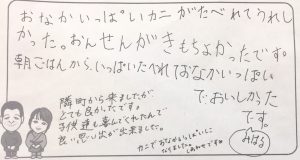 おなかいっぱいカニがたべれてうれし
かった。おんせんがきもちよかったです。
朝ごはんから、いっぱいたべれておなかいっぱい
でおいしかった
です。
みはる
隣町から来ましたが
とても良かったです。
子供達も喜んでくれたんで
良い思い出が出来ました。
カニでおなかいっぱいに
なりました。しあわせです。